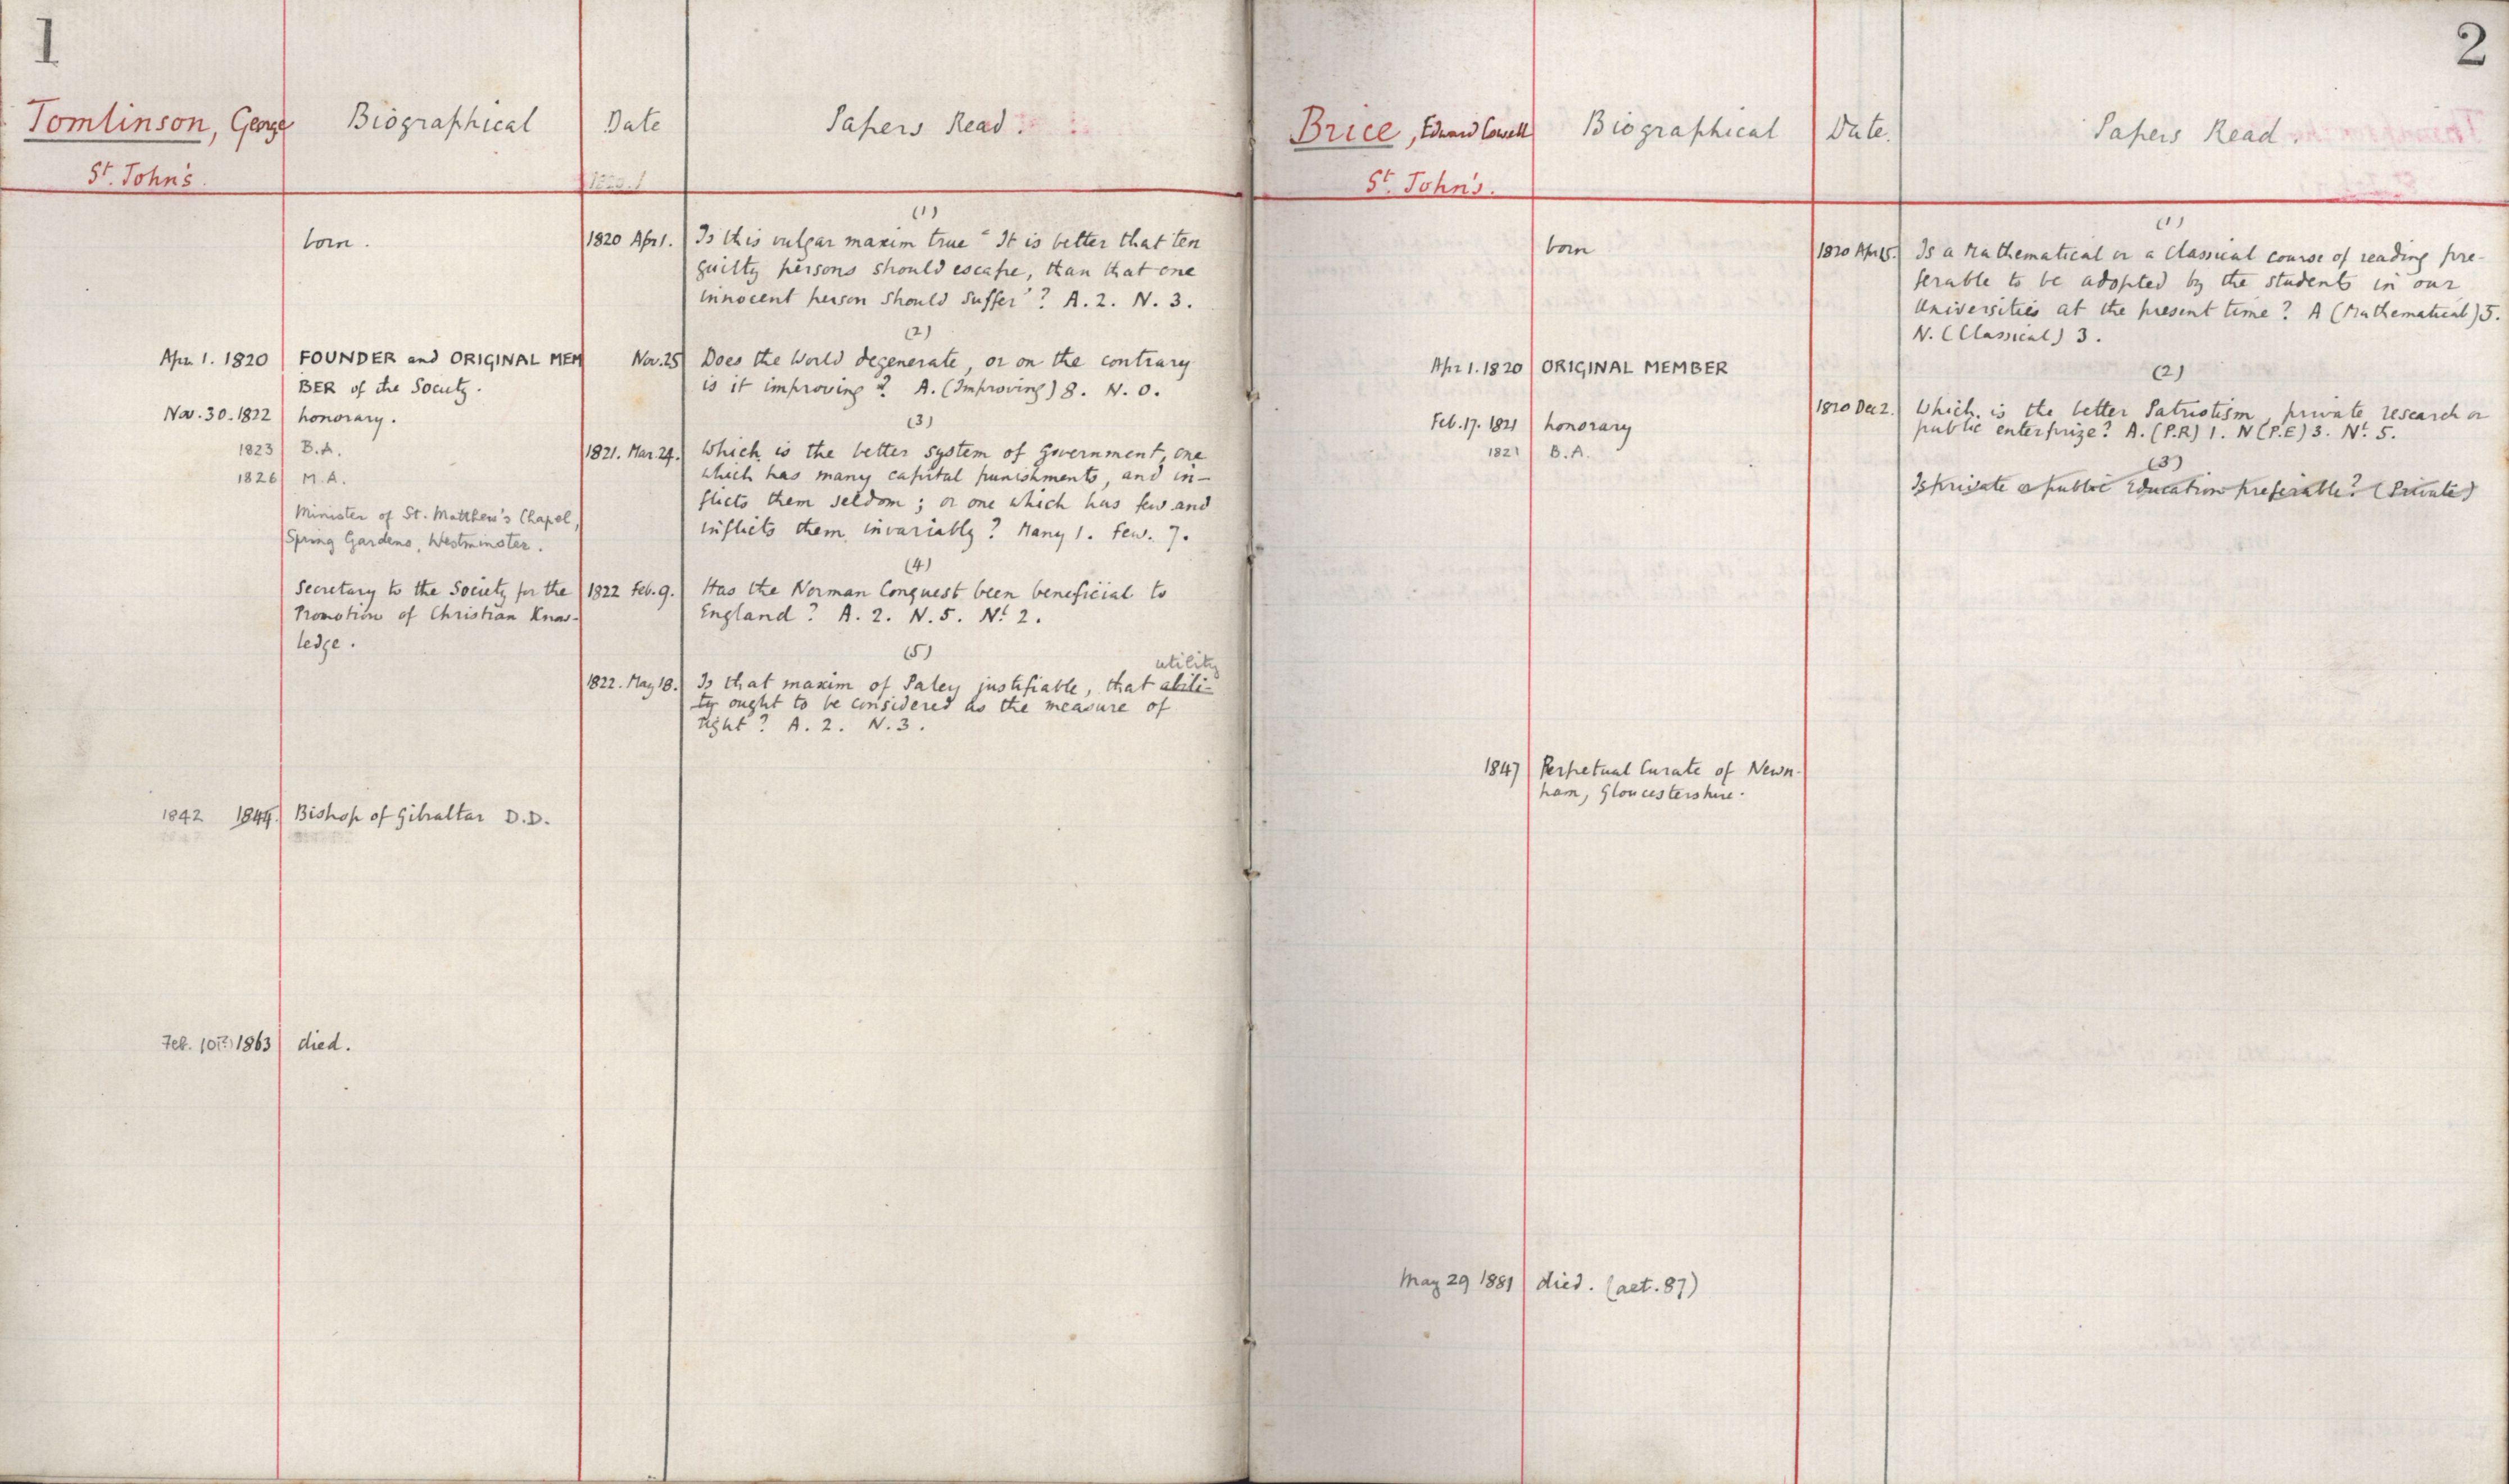 1
Tomlinson, George
St. John's.
Biographical
Date
Papers Read.
born.
Apr. 1. 1820 FOUNDER and ORIGINAL MEM
BER of the Society.
Nov. 30. 1822 honorary.
1823 B.A.
1826 M.A.
Minister of St. Matthew's Chapel,
Spring Gardens, Westminster.
Secretary to the Society for the
Promotion of Christian Know-
ledge.
1842 1844. Bishop of Gibraltar D.D.
Feb. 1863 died.
(1)
1820 Apr 1. Is this vulgar maxim true "It is better that ten
guilty persons should escape, than that one
innocent person should suffer"? A. 2. N. 3.
(2)
Nov. 25 Does the World degenerate, or on the contrary
is it improving? A. (Improving) 8. N. 0.
(3)
1821. Mar. 24. Which is the better system of Government, one
which has many capital punishments, and in-
flicts them seldom; or one which has few and
inflicts them invariably? Many 1. Few. 7.
(4)
1822 Feb. 9. Has the Norman Conquest been beneficial to
England? A. 2. N. 5. Nt 2.
(5)
utility
1822. May 18. Is that maxim of Paley justifiable, that abili-
ty ought to be considered as the measure of
right? A. 2. N. 3.
2
Brice, Edward Cowell
St. John's.
Biographical
Date.
Papers Read.
born
Apr 1. 1820 ORIGINAL MEMBER
Feb. 17. 1821 honorary
1821 B.A.
1847 Perpetual Curate of Newn-
ham, Gloucestershire.
May 29 1881 died. (aet. 87)
(1)
1820 Apr 15. Is a Mathematical or a Classical course of reading pre-
ferable to be adopted by the students in our
Universities at the present time? A (Mathematical) 5.
N. (Classical) 3.
(2)
1820 Dec 2. Which is the better Patriotism, private research or
public enterprize? A. (P.R) 1. N (P.E) 3. Nt. 5.
(3)
Is private or public Education preferable? (Private)